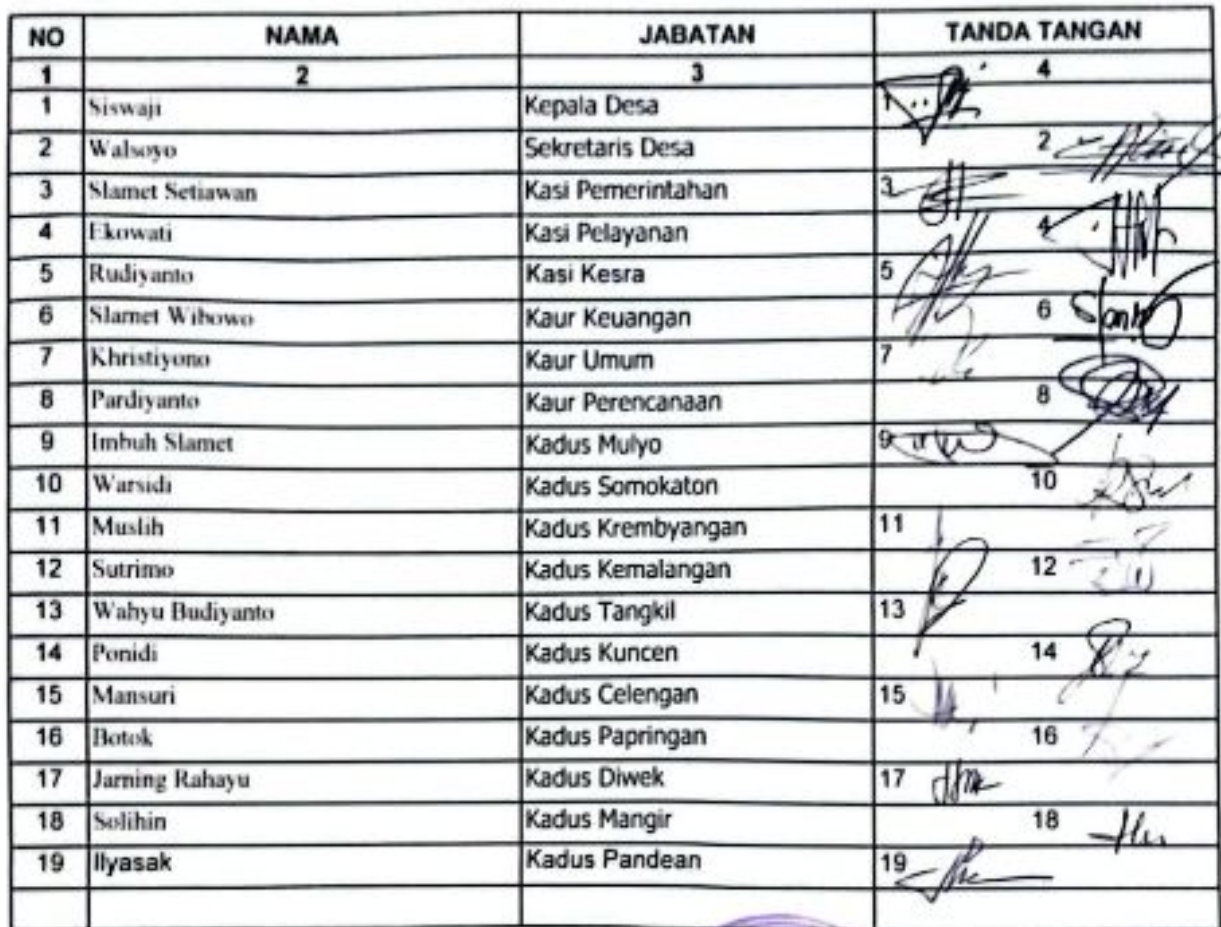 NO NAMA JABATAN TANDA TANGAN
1 2 3 4
1 Siswaji Kepala Desa 1
2 Walsoyo Sekretaris Desa 2
3 Slamet Setiawan Kasi Pemerintahan 3
4 Ekowati Kasi Pelayanan 4
5 Rudiyanto Kasi Kesra 5
6 Slamet Wibowo Kaur Keuangan 6
7 Khristiyono Kaur Umum 7
8 Pardiyanto Kaur Perencanaan 8
9 Imbuh Slamet Kadus Mulyo 9
10 Warsidi Kadus Somokaton 10
11 Muslih Kadus Krembyangan 11
12 Sutrimo Kadus Kemalangan 12
13 Wahyu Budiyanto Kadus Tangkil 13
14 Ponidi Kadus Kuncen 14
15 Mansuri Kadus Celengan 15
16 Botok Kadus Papringan 16
17 Jarning Rahayu Kadus Diwek 17
18 Solihin Kadus Mangir 18
19 Ilyasak Kadus Pandean 19